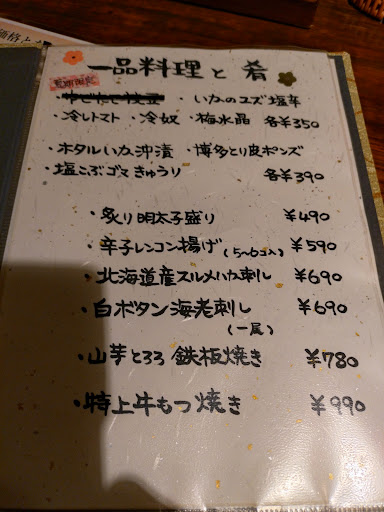 一品料理と肴
・ゆでたて枝豆 ・いかのユズ塩辛
・冷しトマト ・冷奴 ・梅水晶 各¥350
・ホタルいか沖漬 ・博多とり皮ポンズ
・塩こぶゴマきゅうり 各¥390
・炙り明太子盛り ¥490
・辛子レンコン揚げ(5〜6コ入) ¥590
・北海道産スルメいか刺し ¥690
・白ボタン海老刺し ¥690
(一尾)
・山芋とろろ鉄板焼き ¥780
・特上牛もつ焼き ¥990